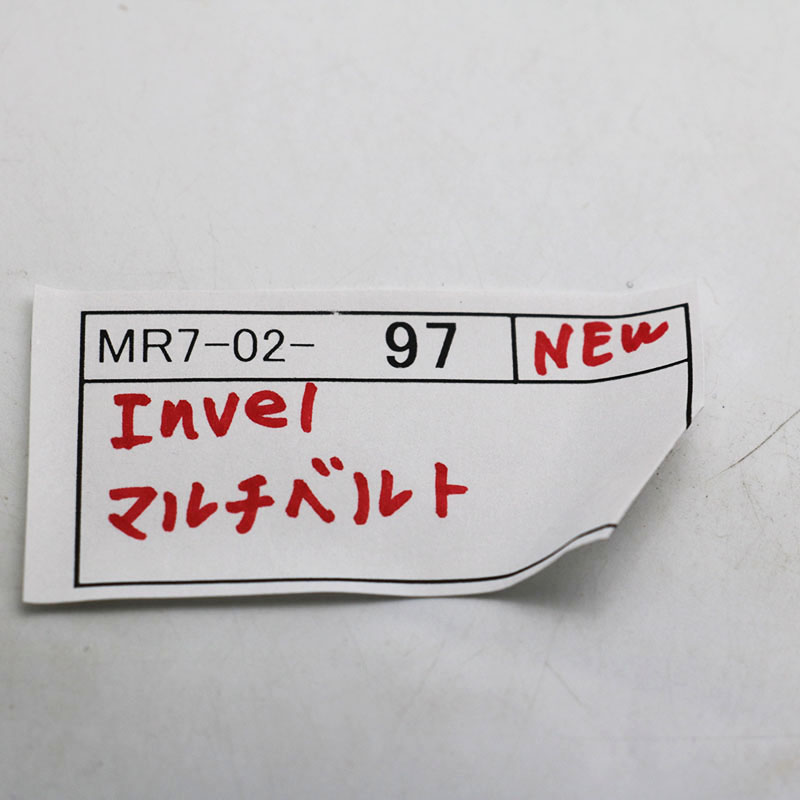 MR7-02- 97 NEW
Invel
マルチベルト